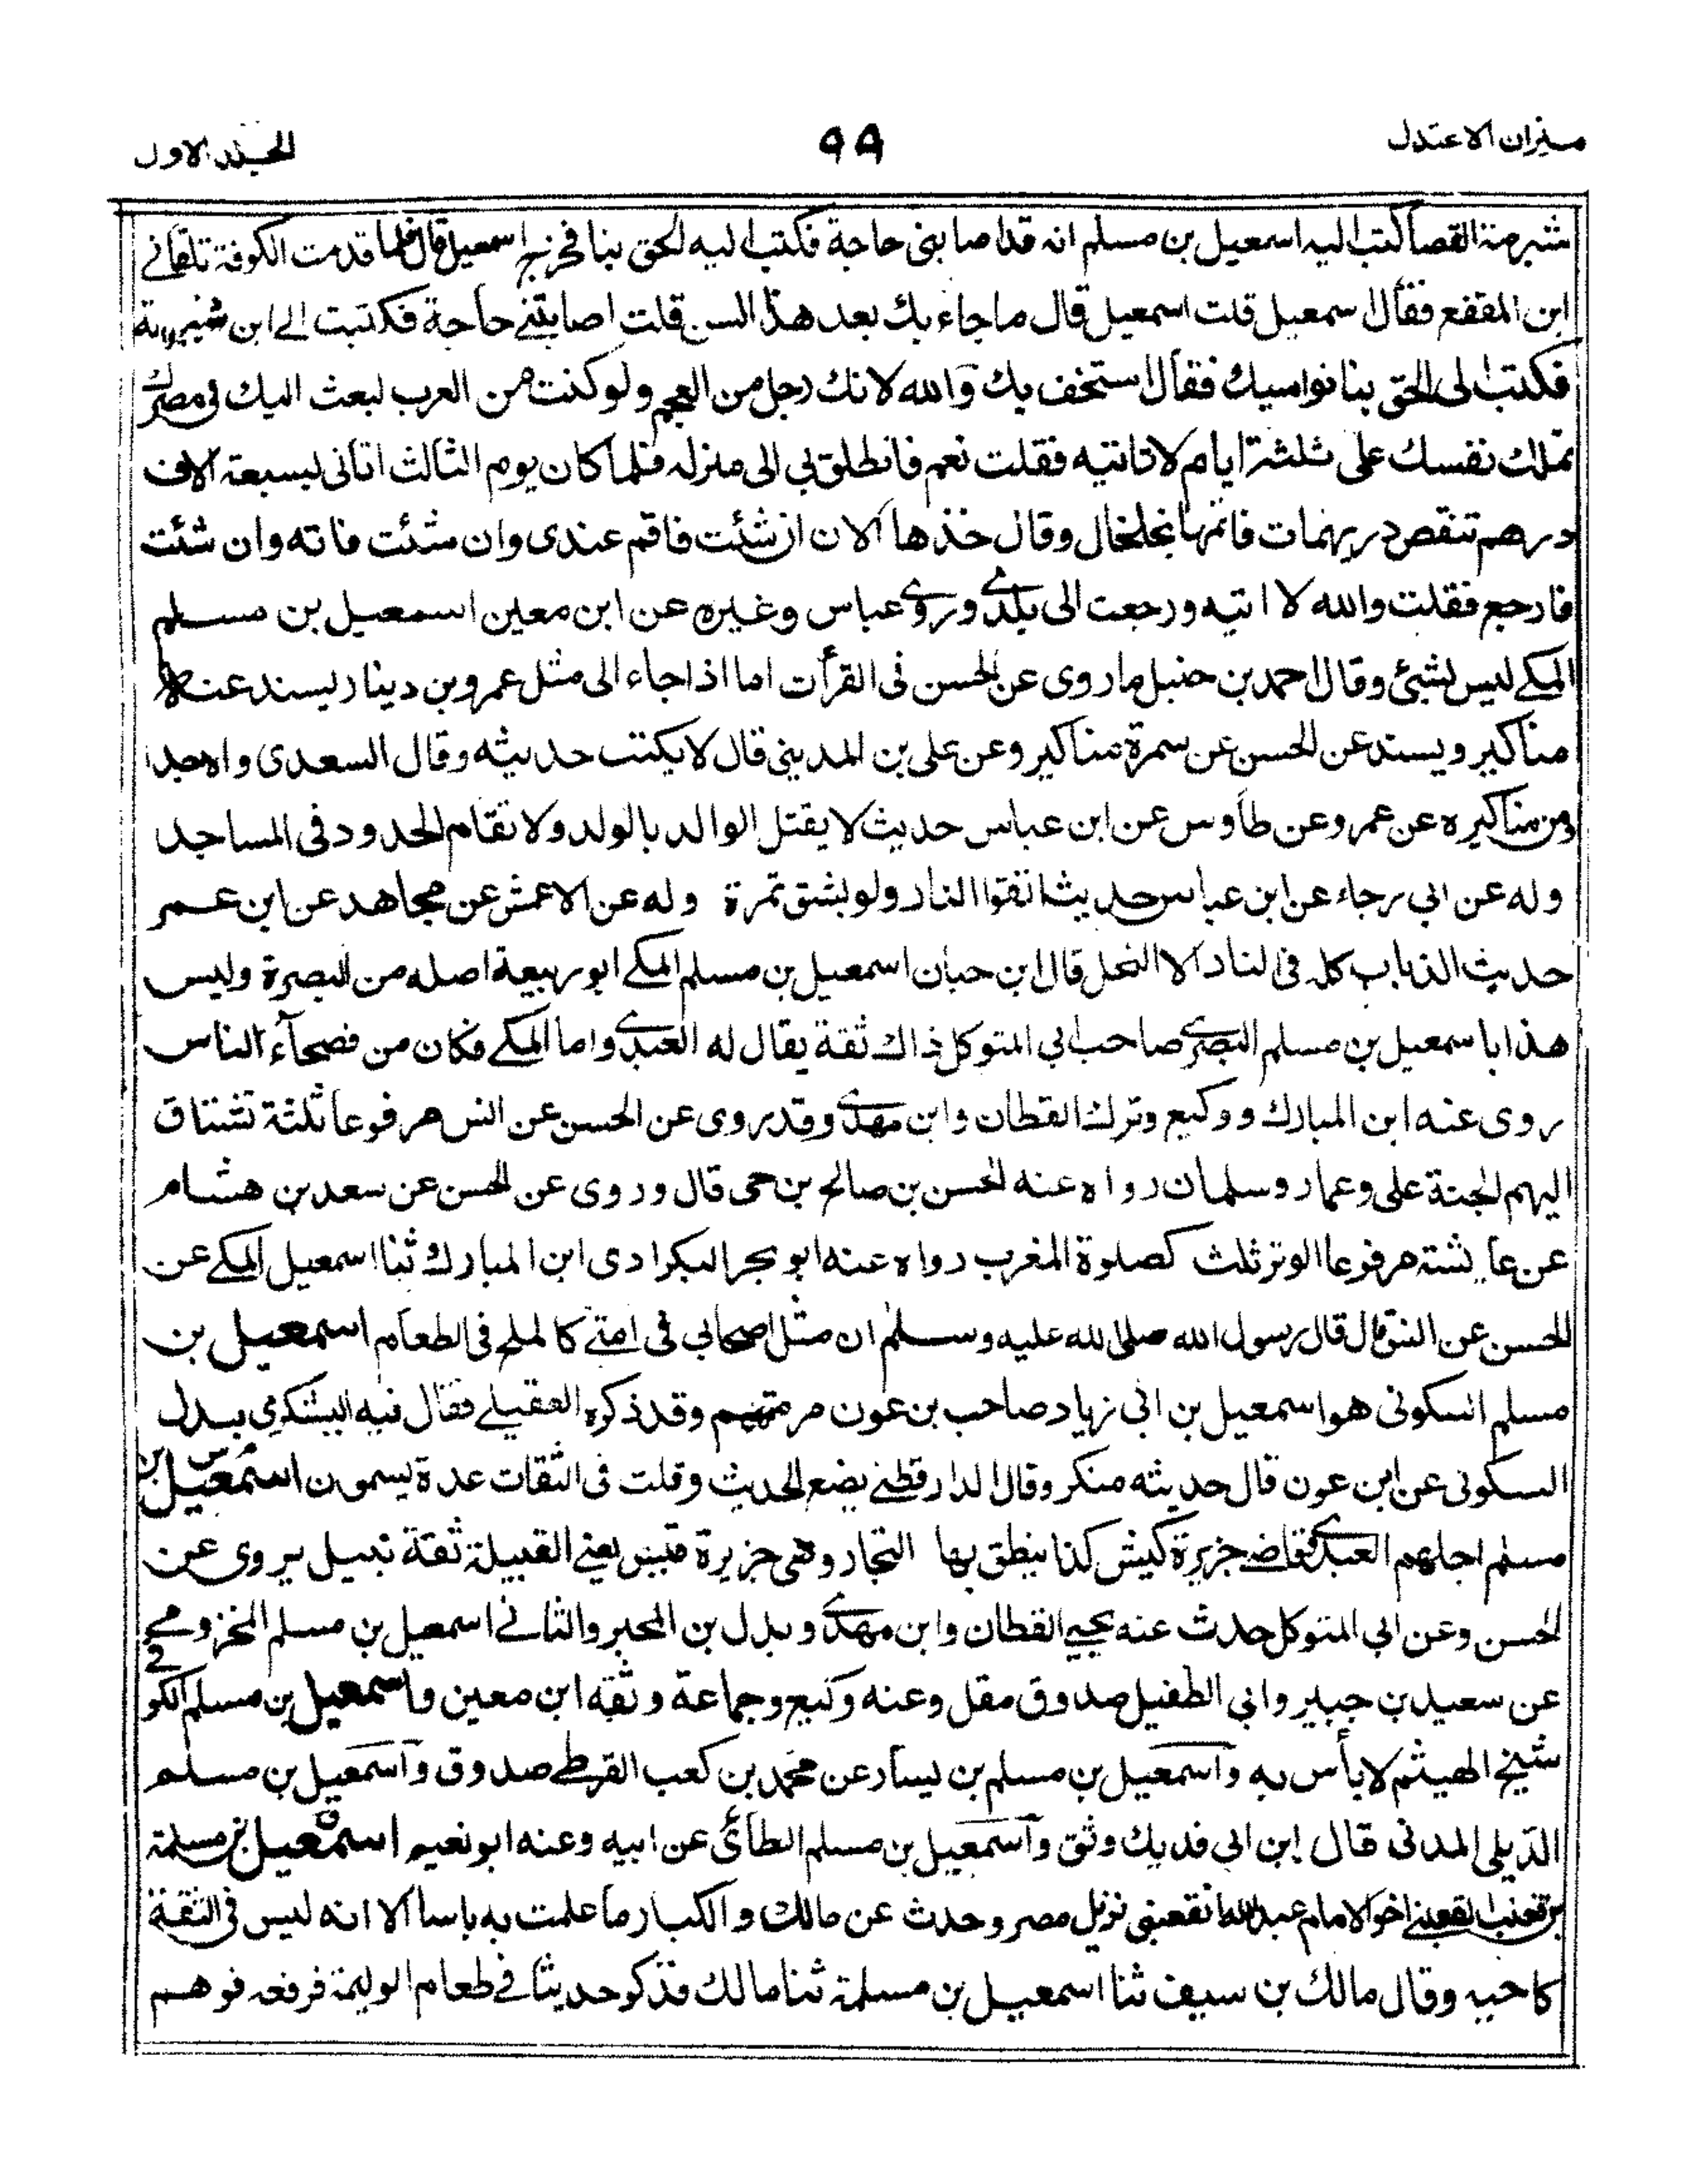 ميزان الاعتدل
٩٩
الجلد الاول
شبرمة القضا كتب اليه اسمعيل بن مسلم انه قد اصابنى حاجة فكتب اليه الحق بنا فخرج اسمعيل قال فلما قدمت الكوفة تلقانے
ابن المقفع فقال اسمعيل قلت اسمعيل قال ما جاء بك بعد هذا السن قلت اصابتنے حاجة فكتبت الے ابن شبرمة
فكتب الى الحق بنا نواسيك فقال استخف بك والله لانك رجل من العجم ولو كنت من العرب لبعث اليك فى مصرك
تملك نفسك على ثلثة ايام لا تاتيه فقلت نعم فانطلق بى الى منزله فلما كان يوم الثالث اتانى بسبعة الاف
درهم تنقص دريهمات فاتمها بخلخال وقال خذها الان ان شئت فاقم عندى وان شئت فاته وان شئت
فارجع فقلت والله لا اتيه ورجعت الى بلدے وروے عباس وغيره عن ابن معين اسمعيل بن مسلم
المكے ليس بشئ وقال احمد بن حنبل ما روى عن الحسن فى القرأت اما اذا جاء الى مثل عمرو بن دينار يسند عنه
مناكير ويسند عن الحسن عن سمرة مناكير وعن على بن المدينى قال لا يكتب حديثه وقال السعدى واه جدا
ومن مناكيره عن عمرو عن طاوس عن ابن عباس حديث لا يقتل الوالد بالولد ولا تقام الحدود فى المساجد
وله عن ابى رجاء عن ابن عباس حديث اتقوا النار ولو بشق تمرة وله عن الاعمش عن مجاهد عن ابن عمر
حديث الذباب كله فى النار الا النحل قال ابن حبان اسمعيل بن مسلم المكے ابو ربيعة اصله من البصرة وليس
هذا باسمعيل بن مسلم البصرے صاحب ابى المتوكل ذاك ثقة يقال له العبدے واما المكے فكان من فصحآء الناس
روى عنه ابن المبارك ووكيع وترك القطان وابن مهدے وقد روى عن الحسن عن انس مرفوعا ثلثة تشتاق
اليهم الجنة على وعمار وسلمان رواه عنه الحسن بن صالح بن حى قال وروى عن الحسن عن سعد بن هشام
عن عائشة مرفوعا الوتر ثلث كصلوة المغرب رواه عنه ابو بحر البكرادى ابن المبارك ثنا اسمعيل المكے عن
الحسن عن انس قال قال رسول الله صلى الله عليه وسلم ان مثل اصحابى فى امتے كالملح فى الطعام اسمعيل بن
مسلم السكونى هو اسمعيل بن ابى زياد صاحب بن عون مر متهم وقد ذكره العقيلے فقال فيه اليشكرى بدل
السكونى عن ابن عون قال حديثه منكر وقال الدارقطنے يضع الحديث وقلت فى الثقات عدة يسمون اسمعيل بن
مسلم اجلهم العبدے قاضے جزيرة كيش كذا ينطق بها التجار وهى جزيرة قيس يعنے القبيلة ثقة نبيل يروى عن
الحسن وعن ابى المتوكل حدث عنه يحيى القطان وابن مهدے وبدل بن المحبر والثانے اسمعيل بن مسلم المخزومے
عن سعيد بن جبير وابى الطفيل صدوق مقل وعنه وكيع وجماعة وثقه ابن معين واسمعيل بن مسلم الكوفے
شيخ الهيثم لا بأس به واسمعيل بن مسلم بن يسار عن محمد بن كعب القرظے صدوق واسمعيل بن مسلم
الديلى المدنى قال ابن ابى فديك وثق واسمعيل بن مسلم الطائ عن ابيه وعنه ابو نعيم اسمعيل بن مسلمة
بن قعنب القعنبے اخو الامام عبد الله القعنبى نزيل مصر وحدث عن مالك والكبار ما علمت به باسا الا انه ليس فى الثقة
كاخيه وقال مالك بن سيف ثنا اسمعيل بن مسلمة ثنا مالك فذكر حديثا فے طعام الوليمة فرفعه فوهم